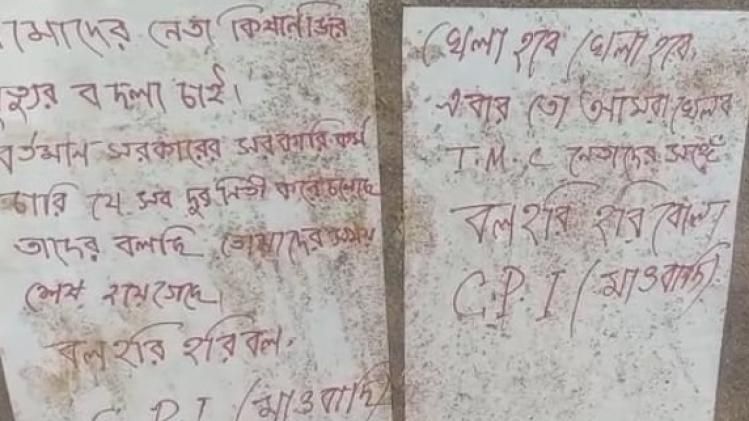 আমাদের নেতা কিষানজির
মৃত্যুর বদলা চাই।
বর্তমান সরকারের সরকারি কর্ম
চারি যে সব দুর্নিতী করে চলেছে
তাদের বলছি তোমাদের সময়
শেষ হয়ে গেছে।
বল হরি হরি বল.
C.P.I (মাওবাদি)
খেলা হবে খেলা হবে,
এবার তো আমরা খেলব
T.M.C নেতাদের সঙ্গে
বল হরি হরি বোল
C.P.I (মাওবাদি)